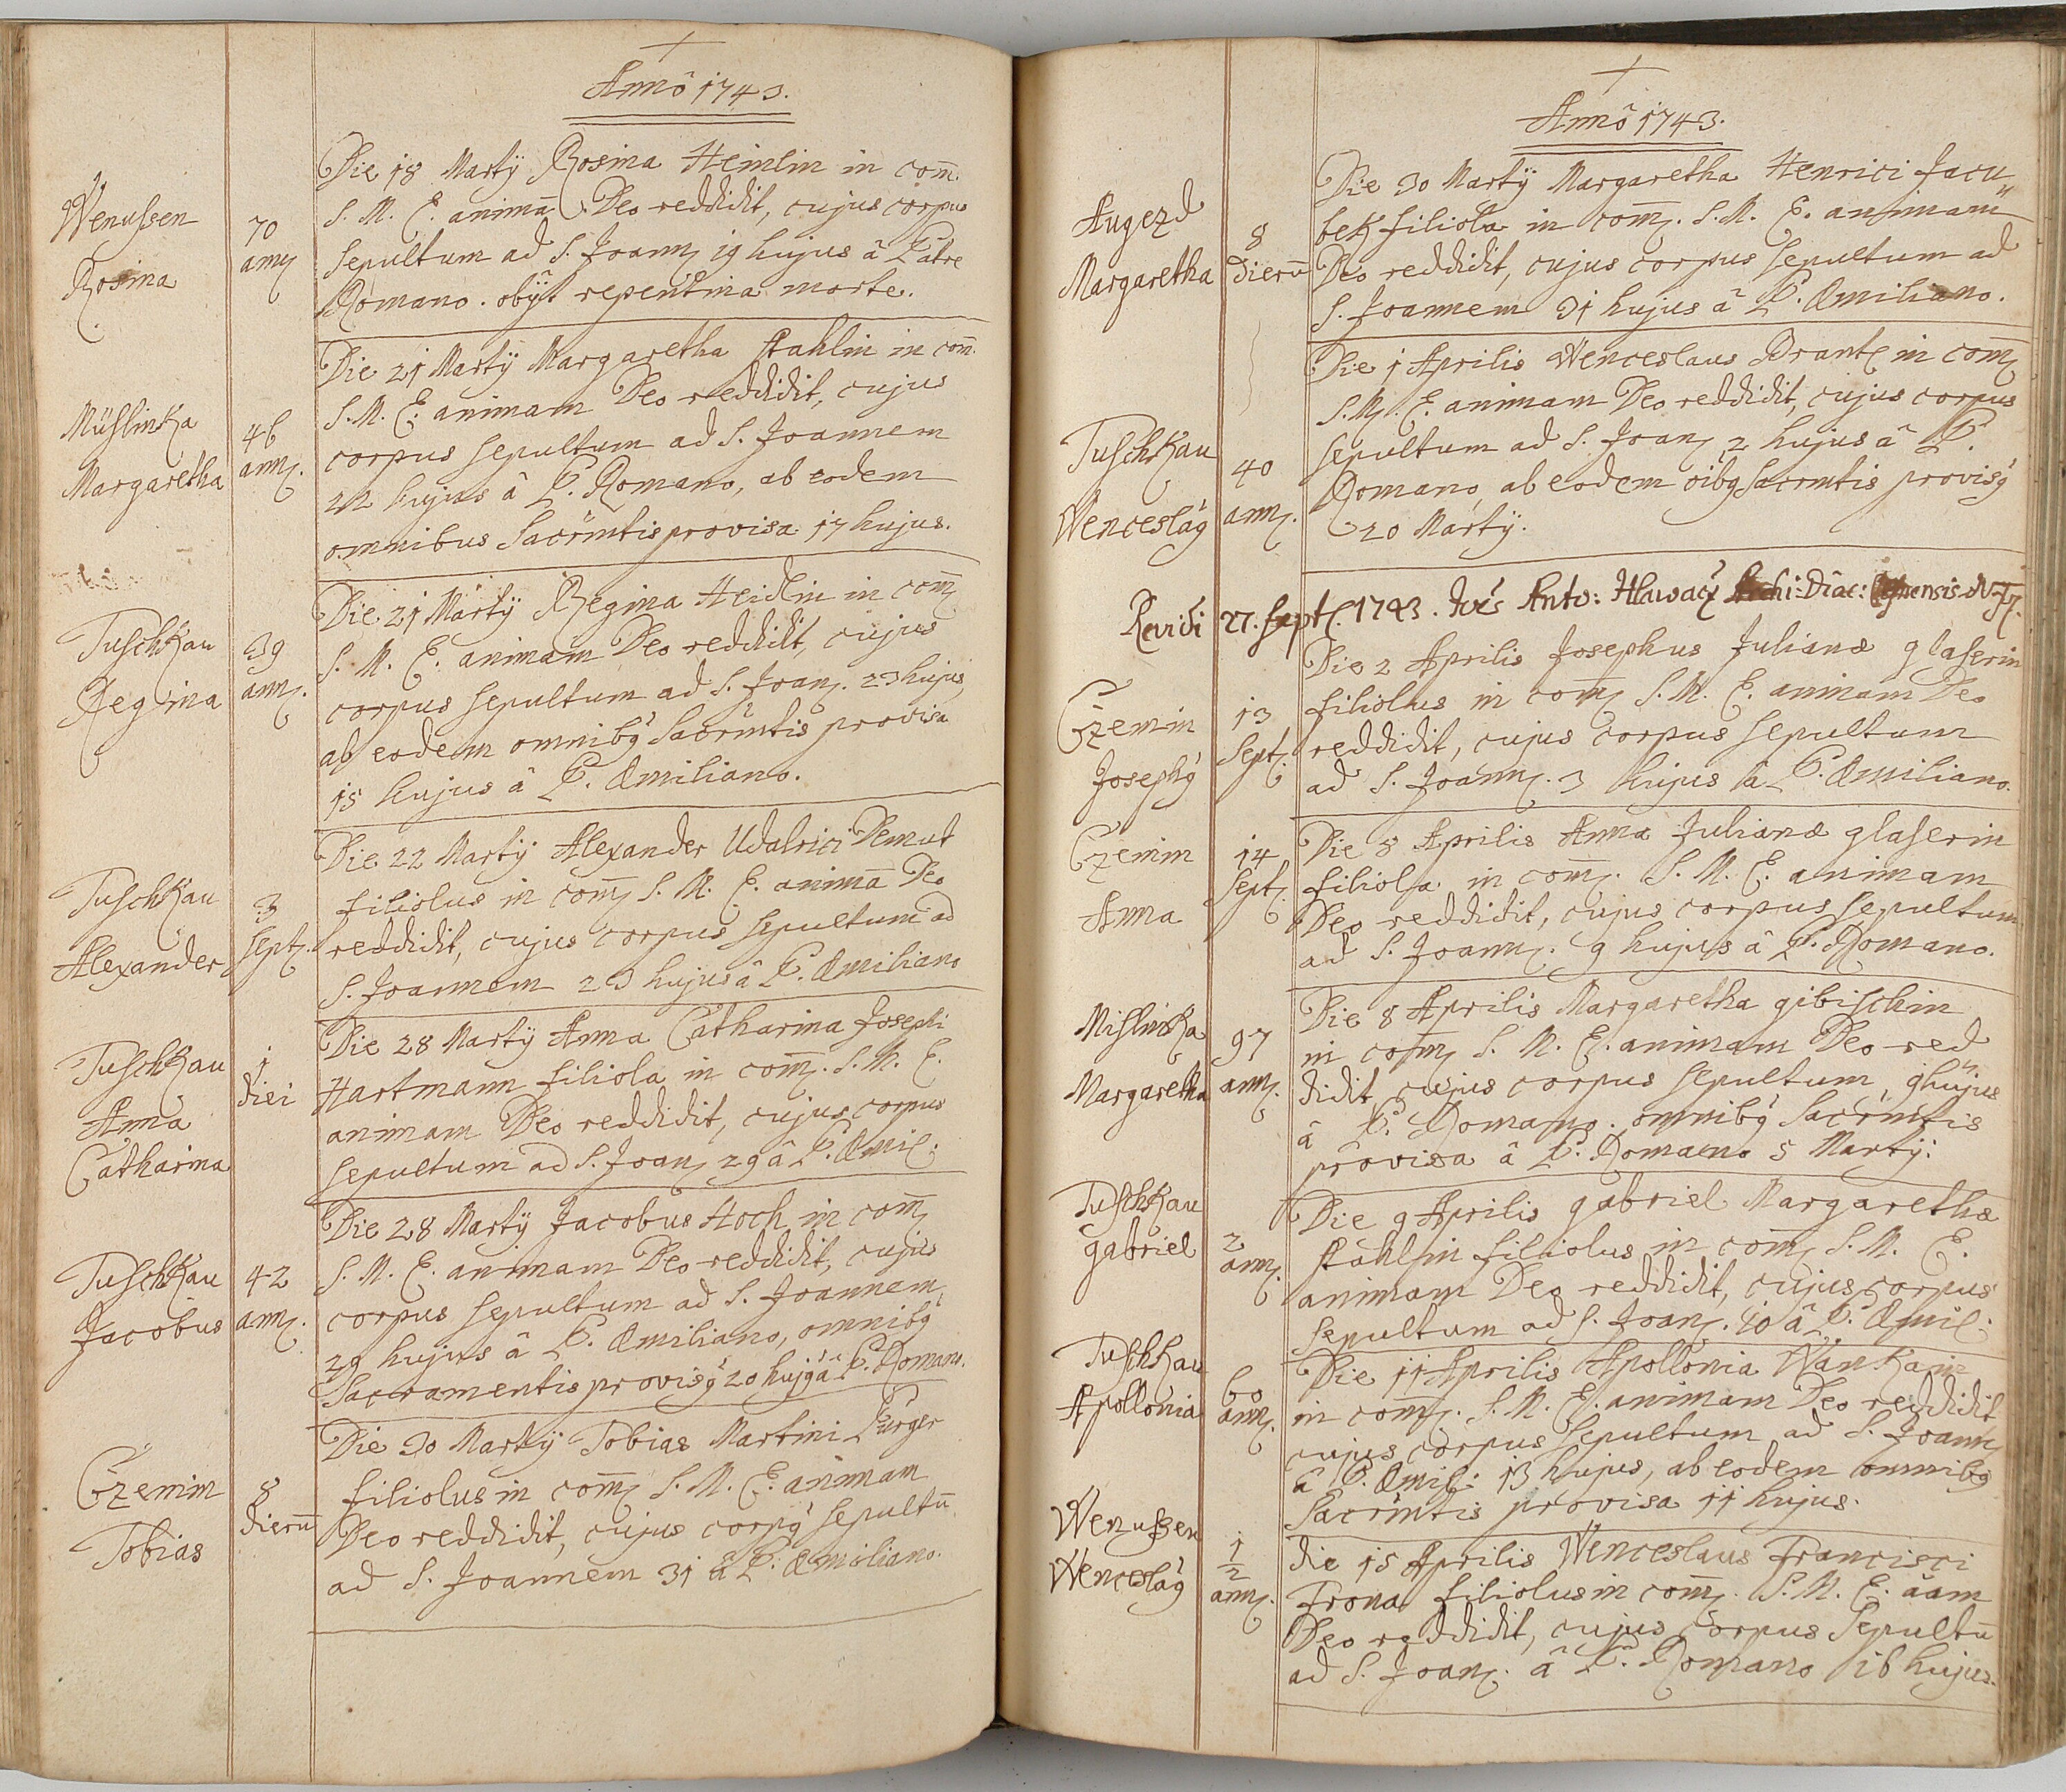 Annô 1743.
Wenussen
Rosina
70
anñ
Die 18 Martÿ Rosina Heinlin in com̄.
S. M. E. animā Deo reddidit, cujus corpus
sepultum ad S. Joanñ 19 hujus â Patre
Romano. obÿt repentina morte.
Müslinka
Margaretha
46
anñ.
Die 21 Martÿ Margaretha Stahlin in com̄.
S. M. E. animam Deo reddidit, cujus
corpus sepultum ad S. Joannem
22 hujus â P. Romano, ab eodem
omnibus Sacrm̃tis provisa 17 hujus.
Tuschkau
Regina
39
anñ.
Die 21 Martÿ Regina Heidlin in com̄
S. M. E. animam Deo reddidit, cujus
corpus sepultum ad S. Joanñ. 23 hujus,
ab eodem omnibq Sacrm̃tis provisa
15 hujus â P. Æmiliano.
Tuschkau
Alexander
3
Sept.
Die 22 Martÿ Alexander Udalrici Demut
filiolus in com̄ S. M. E. animā Deo
reddidit, cujus corpus sepultum ad
S. Joannem 23 hujus â P. Æmiliano
Tuschkau
Anna
Catharina
1
diei
Die 28 Martÿ Anna Catharina Josephi
Hartmann filiola in com̄. S. M. E.
animam Deo reddidit, cujus corpus
sepultum ad S. Joanñ 29 â P. Æmil:
Tuschkau
Jacobus
42
anñ.
Die 28 Martÿ Jacobus Hoch in com̄
S. M. E. animam Deo reddidit, cujus
corpus sepultum ad S. Joannem
29 hujus â P. Æmiliano, omnibq
Sacramentis provisq 20 hujq â P. Romano.
Czemin
Tobias
8
dierū
Die 30 Martÿ Tobias Martini Pürger
filiolus in com̄ S. M. E. animam
Deo reddidit, cujus corpq sepultū
ad S. Joannem 31 â P. Æmiliano.
Annô 1743.
Augezd
Margaretha
8
dierū
Die 30 Martÿ Margaretha Henrici Jacu
bek filiola in com̄. S. M. E. animam
Deo reddidit, cujus corpus sepultum ad
S. Joannem 31 hujus â P. Æmiliano.
Tuschkau
Wenceslaq
40
anñ.
Die 1 Aprilis Wenceslaus Brantl in com̄
S. M. E. animam Deo reddidit, cujus corpus
sepultum ad S. Joanñ 2 hujus â P.
Romano, ab eodem oibq Sacrm̃tis provisq
20 Martÿ.
Revidi 27. Sept. 1743. Anto: Hlawacz Archi:Diac:
Czemin
Josephq
13
Sept.
Die 2 Aprilis Josephus Julianæ glaserin
filiolus in com̄ S. M. E. animam Deo
reddidit, cujus corpus sepultum
ad S. Joanñ. 3 hujus â P. Æmiliano.
Czemin
Anna
14
Sept.
Die 8 Aprilis Anna Julianæ glaserin
filiola in com̄. S. M. E. animam
Deo reddidit, cujus corpus sepultum
ad S. Joanñ. 9 hujus â P. Romano.
Mislinka
Margaretha
97
anñ.
Die 8 Aprilis Margaretha gibischin
in com̄ S. M. E. animam Deo red
didit cujus corpus sepultum, 9 hujus
â P. Romano. omnibq Sacrm̃tis
provisa â P. Romano 5 Martÿ.
Tuschkau
gabriel
2
anñ.
Die 9 Aprilis gabriel Margarethæ
Stahlin filiolus in com̄ S. M. E.
animam Deo reddidit, cujus corpus
sepultum ad S. Joanñ. 10 â P. Æmil:
Tuschkau
Apollonia
60
anñ.
Die 11 Aprilis Apollonia Wankain
in com̄. S. M. E. animam Deo reddidit
cujus corpus sepultum ad S. Joanñ
â P. Æmil: 13 hujus, ab eodem omnibq
Sacrm̃tis provisa 11 hujus.
Wenussen
Wenceslaq
1/2
anñ.
Die 15 Aprilis Wenceslaus Francisci
Frona filiolus in com̄. S. M. E. aam
Deo reddidit, cujus corpus sepultū
ad S. Joanñ. â P. Romano 16 hujus.